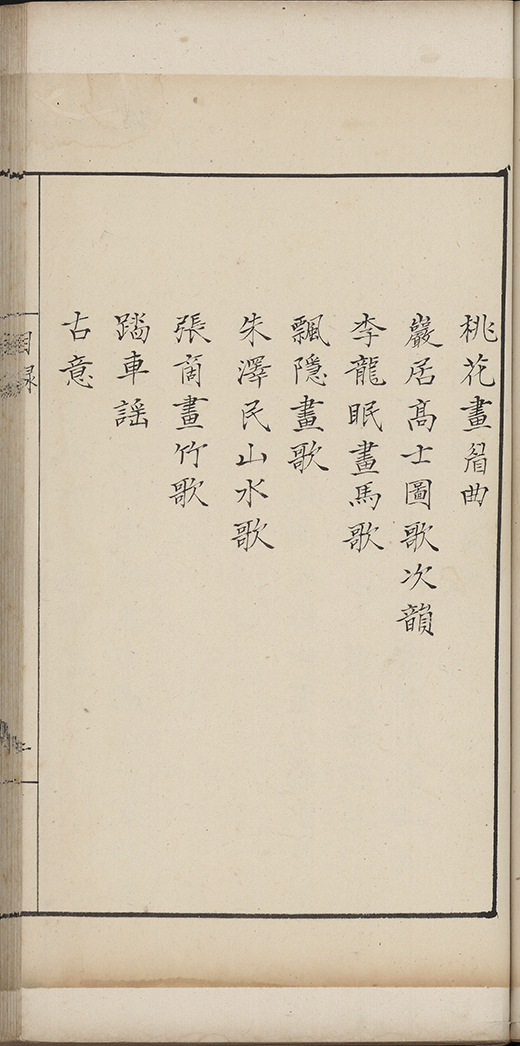 桃花畫眉曲
巖居高士圖歌次韻
李龍眠畫馬歌
飄隱畫歌
朱澤民山水歌
張啇畫竹歌
踏車謡
古意
目録